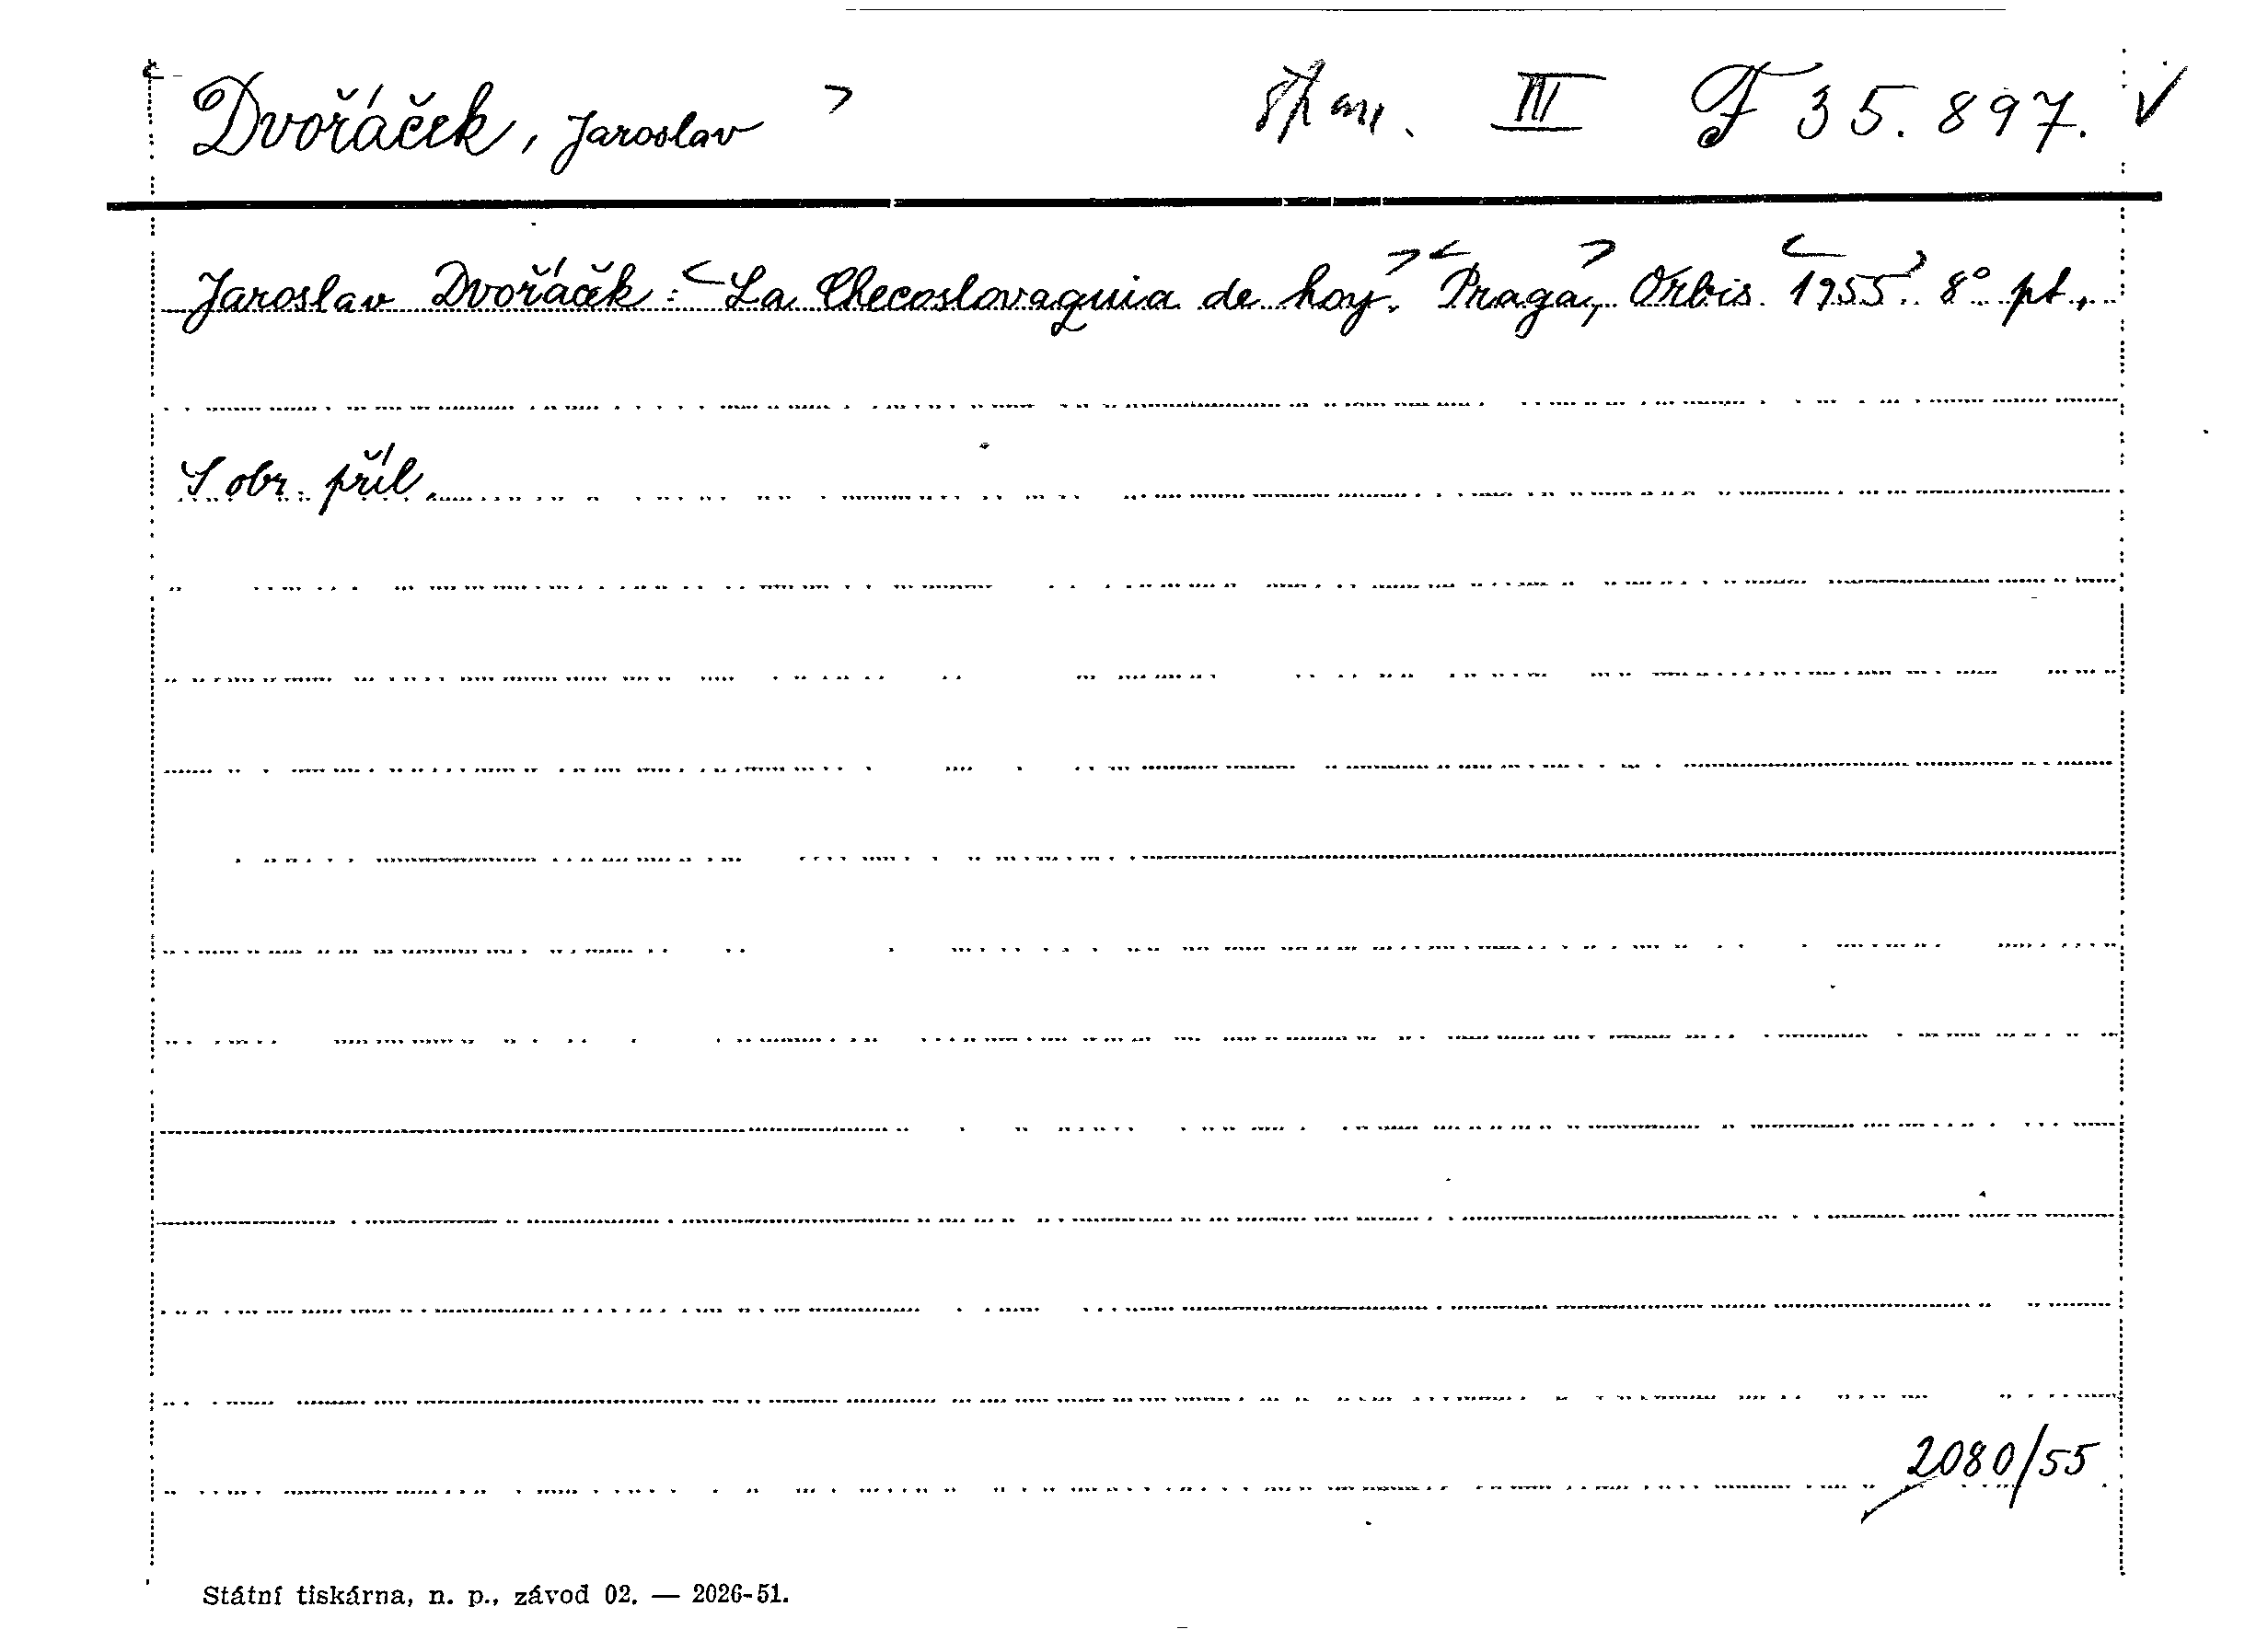 Dvořáček, Jaroslav špan. III F 35.897. ✓
Jaroslav Dvořáček: La Checoslovaquia de hoy. Praga, Orbis 1955. 8° pt.,
S obr. příl.
2080/55
Státní tiskárna, n. p., závod 02. — 2026-51.